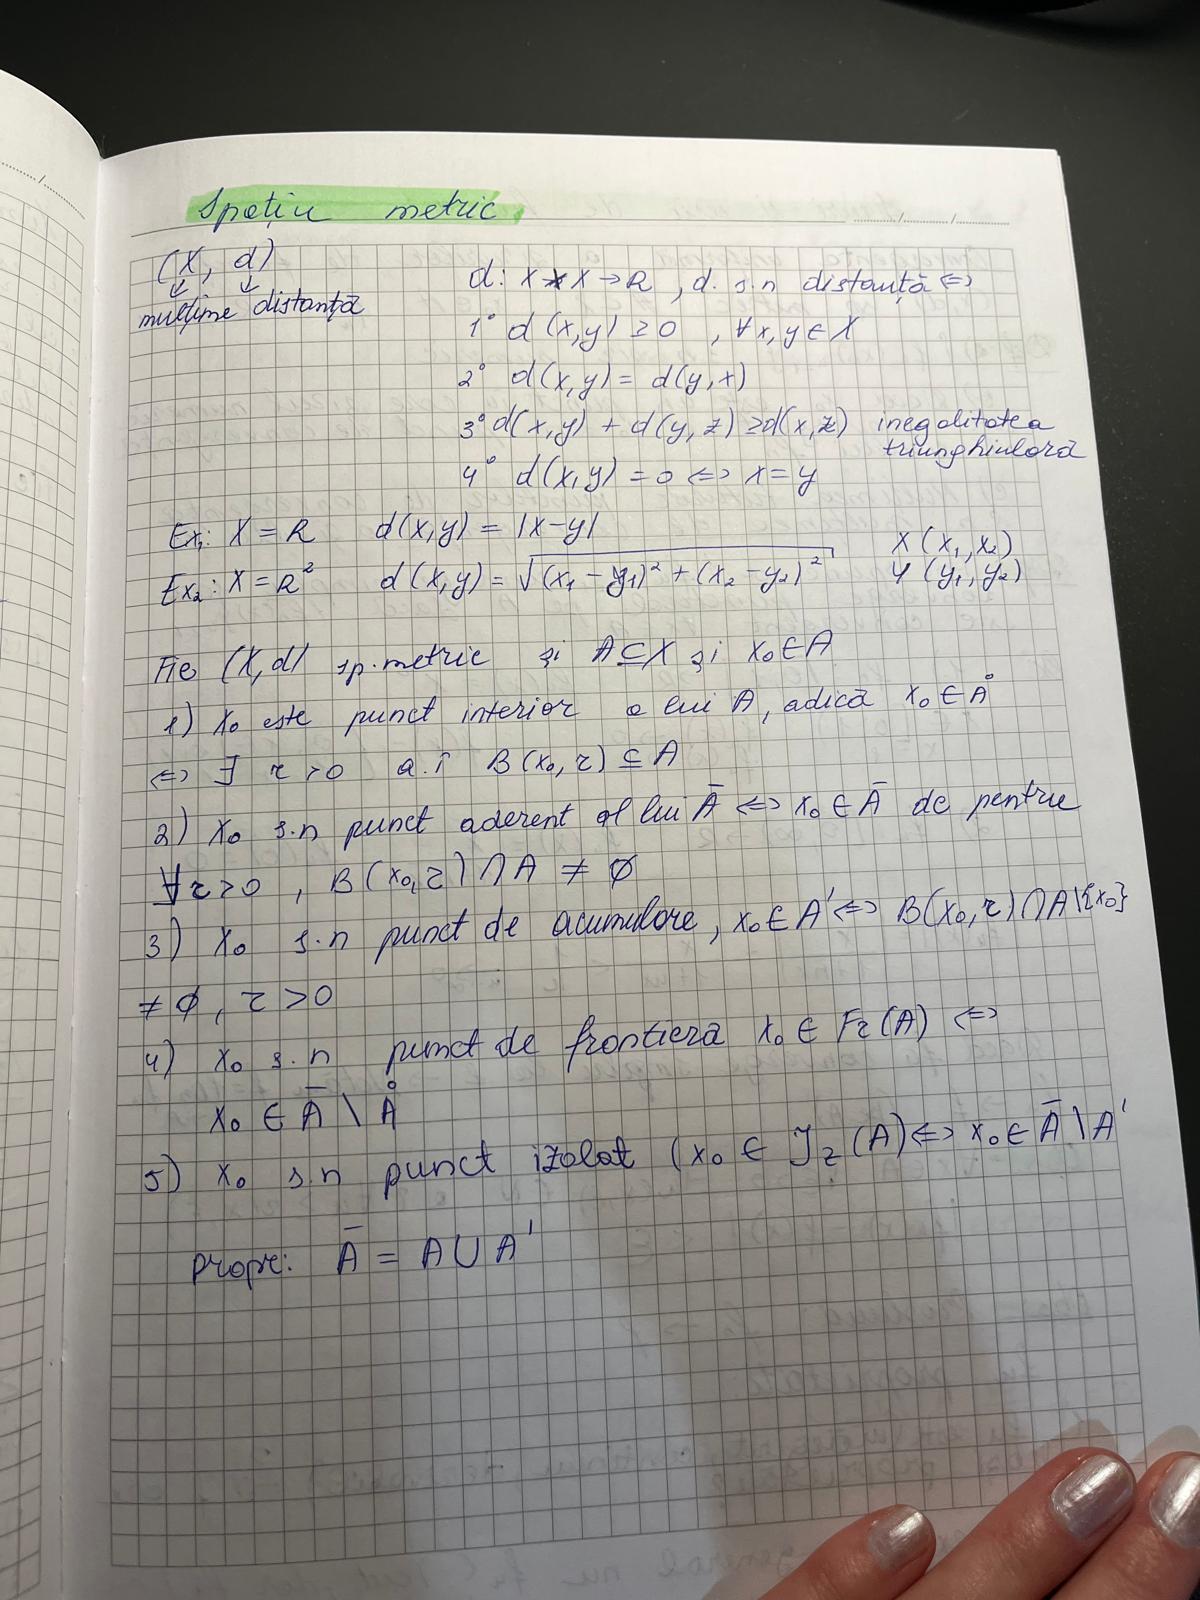 Spațiu metric
(X, d)
↓ ↓
mulțime distanță
d: X x X → R, d. s.n distanță ⇔
1° d(x,y) ≥ 0, ∀x,y ∈ X
2° d(x,y) = d(y,x)
3° d(x,y) + d(y,z) ≥ d(x,z) inegalitatea
triunghiulară
4° d(x,y) = 0 ⇔ x = y
Ex₁: X = R d(x,y) = |x-y|
Ex₂: X = R² d(x,y) = √(x₁ - y₁)² + (x₂ - y₂)²
X (x₁, x₂)
Y (y₁, y₂)
Fie (X, d) sp. metric și A ⊆ X și x₀ ∈ A
1) x₀ este punct interior a lui A, adică x₀ ∈ Å
⇔ ∃ r > 0 a.î B(x₀, r) ⊆ A
2) x₀ s.n punct aderent al lui Ā ⇔ x₀ ∈ Ā de pentru
∀ r > 0, B(x₀, r) ∩ A ≠ ∅
3) x₀ s.n punct de acumulare, x₀ ∈ A' ⇔ B(x₀, r) ∩ A \ {x₀}
≠ ∅, r > 0
4) x₀ s.n punct de frontiera x₀ ∈ Fr(A) ⇔
x₀ ∈ Ā \ Å
5) x₀ s.n punct izolat (x₀ ∈ Iz(A) ⇔ x₀ ∈ Ā \ A'
Propr: Ā = A ∪ A'